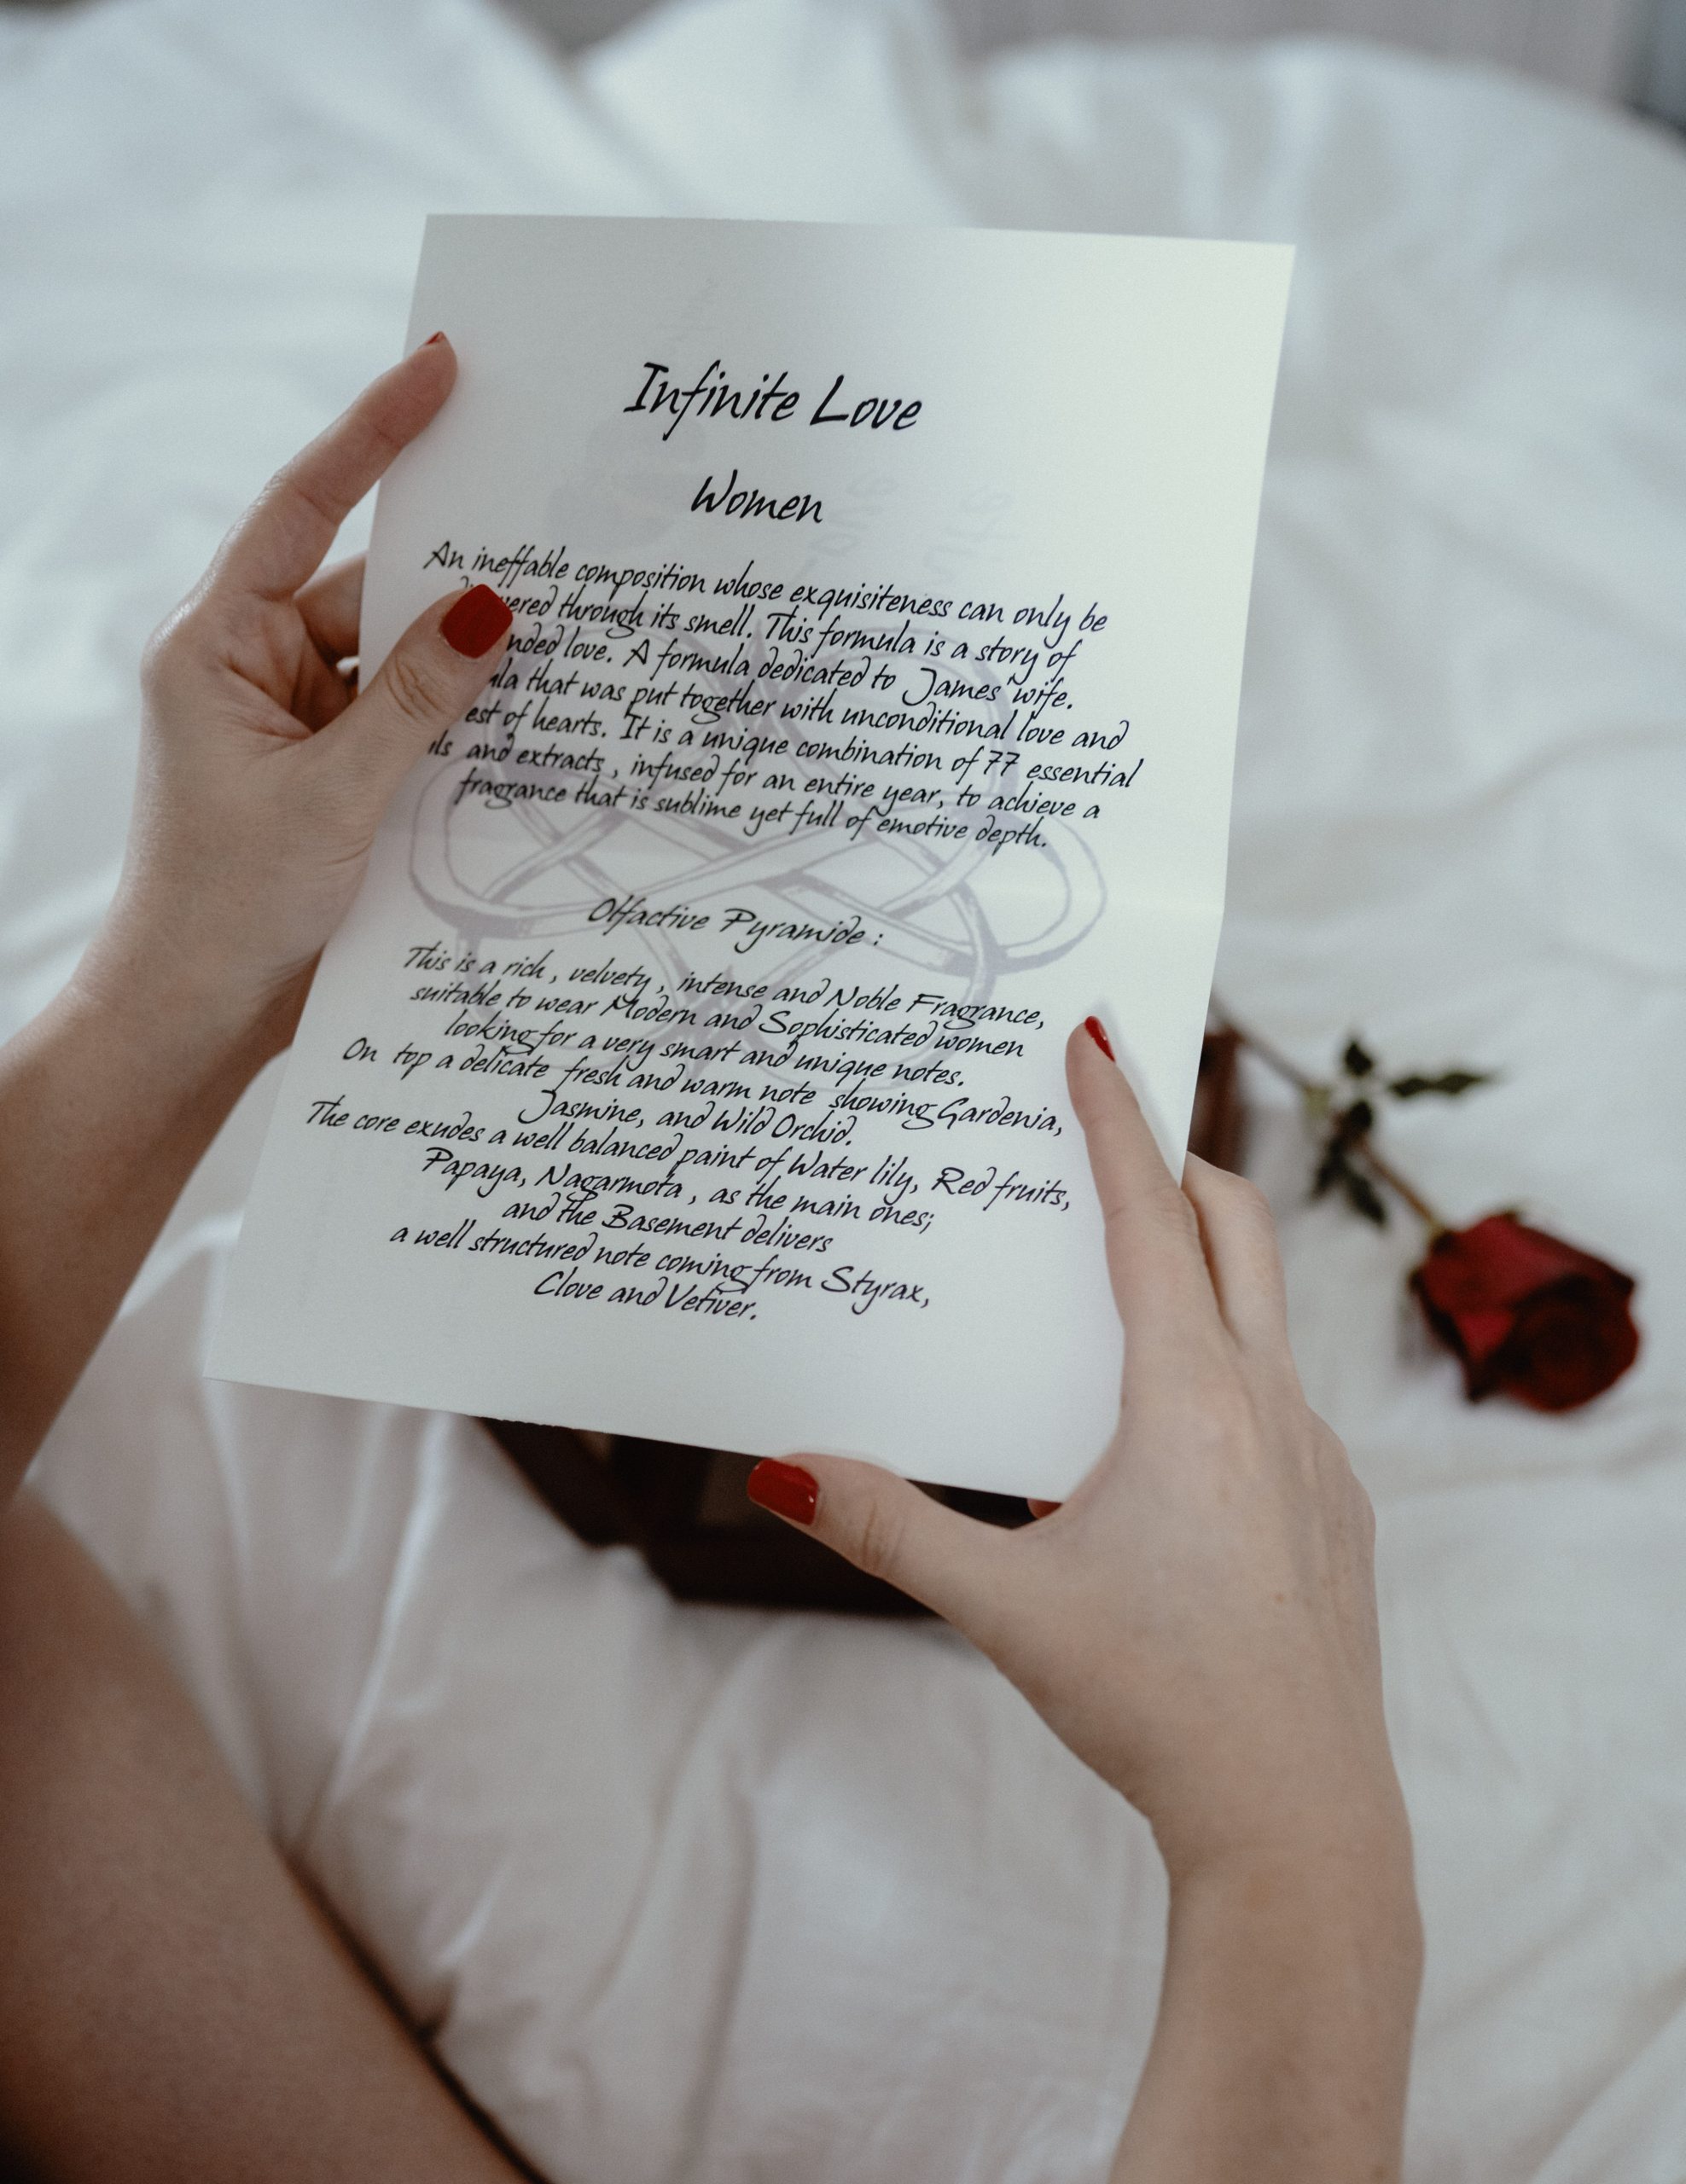 Infinite Love
Women
An ineffable composition whose exquisiteness can only be
through its smell. This formula is a story of
love. A formula dedicated to James' wife.
that was put together with unconditional love and
of hearts. It is a unique combination of 77 essential
and extracts, infused for an entire year, to achieve a
fragrance that is sublime yet full of emotive depth.
Olfactive Pyramide :
This is a rich, velvety, intense and Noble Fragrance,
suitable to wear Modern and Sophisticated women
looking for a very smart and unique notes.
On top a delicate fresh and warm note showing Gardenia,
Jasmine, and Wild Orchid.
The core exudes a well balanced paint of Water lily, Red fruits,
Papaya, Nagarmota, as the main ones;
and the Basement delivers
a well structured note coming from Styrax,
Clove and Vetiver.